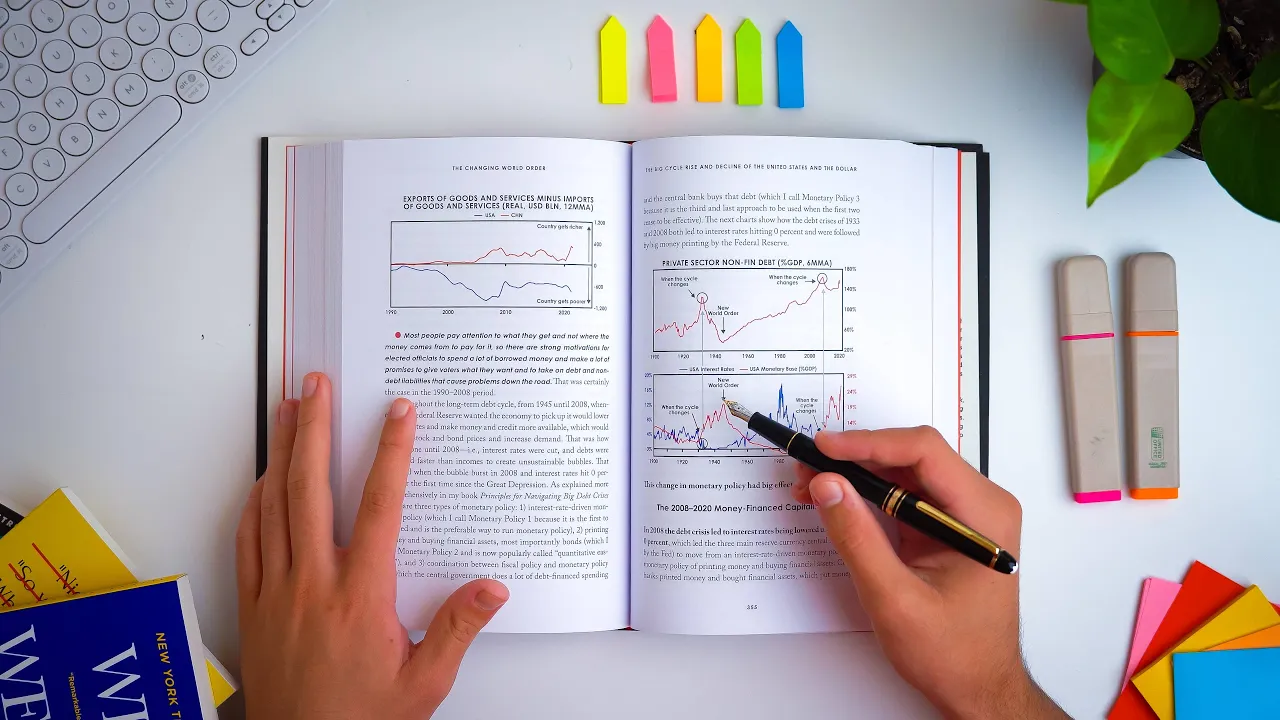 THE CHANGING WORLD ORDER
EXPORTS OF GOODS AND SERVICES MINUS IMPORTS
OF GOODS AND SERVICES (REAL, USD BLN, 12MMA)
USA CHN
Country gets richer
1,200
400
0
-400
Country gets poorer
-1,200
1990 2000 2010 2020
Most people pay attention to what they get and not where the
money comes from to pay for it, so there are strong motivations for
elected officials to spend a lot of borrowed money and make a lot of
promises to give voters what they want and to take on debt and non-
debt liabilities that cause problems down the road. That was certainly
the case in the 1990–2008 period.
out the long-term debt cycle, from 1945 until 2008, when-
ederal Reserve wanted the economy to pick up it would lower
tes and make money and credit more available, which would
tock and bond prices and increase demand. That was how
one until 2008—i.e., interest rates were cut, and debts were
d faster than incomes to create unsustainable bubbles. That
when the bubble burst in 2008 and interest rates hit 0 per-
e first time since the Great Depression. As explained more
ehensively in my book Principles for Navigating Big Debt Crises
re three types of monetary policy: 1) interest-rate-driven mon-
policy (which I call Monetary Policy 1 because it is the first to
ed and is the preferable way to run monetary policy), 2) printing
y and buying financial assets, most importantly bonds (which I
Monetary Policy 2 and is now popularly called "quantitative eas-
"), and 3) coordination between fiscal policy and monetary policy
which the central government does a lot of debt-financed spending
THE BIG CYCLE RISE AND DECLINE OF THE UNITED STATES AND THE DOLLAR
and the central bank buys that debt (which I call Monetary Policy 3
because it is the third and last approach to be used when the first two
cease to be effective). The next charts show how the debt crises of 1933
and 2008 both led to interest rates hitting 0 percent and were followed
by big money printing by the Federal Reserve.
PRIVATE SECTOR NON-FIN DEBT (%GDP, 6MMA)
When the cycle
changes
New
World Order
When the cycle
changes
180%
140%
100%
60%
20%
1900 1920 1940 1960 1980 2000 2020
USA Interest Rates USA Monetary Base (%GDP)
New
World Order
When the cycle
changes
When the
cycle
changes
20%
16%
12%
8%
4%
0%
29%
24%
19%
14%
1900 1920 1940 1960 1980
This change in monetary policy had big effect
The 2008–2020 Money-Financed Capital
In 2008 the debt crisis led to interest rates being lowered
0 percent, which led the three main reserve currency central
by the Fed) to move from an interest-rate-driven monetary
monetary policy of printing money and buying financial assets.
banks printed money and bought financial assets, which put money
355
NEW YORK T
"Remarkable
WE
W